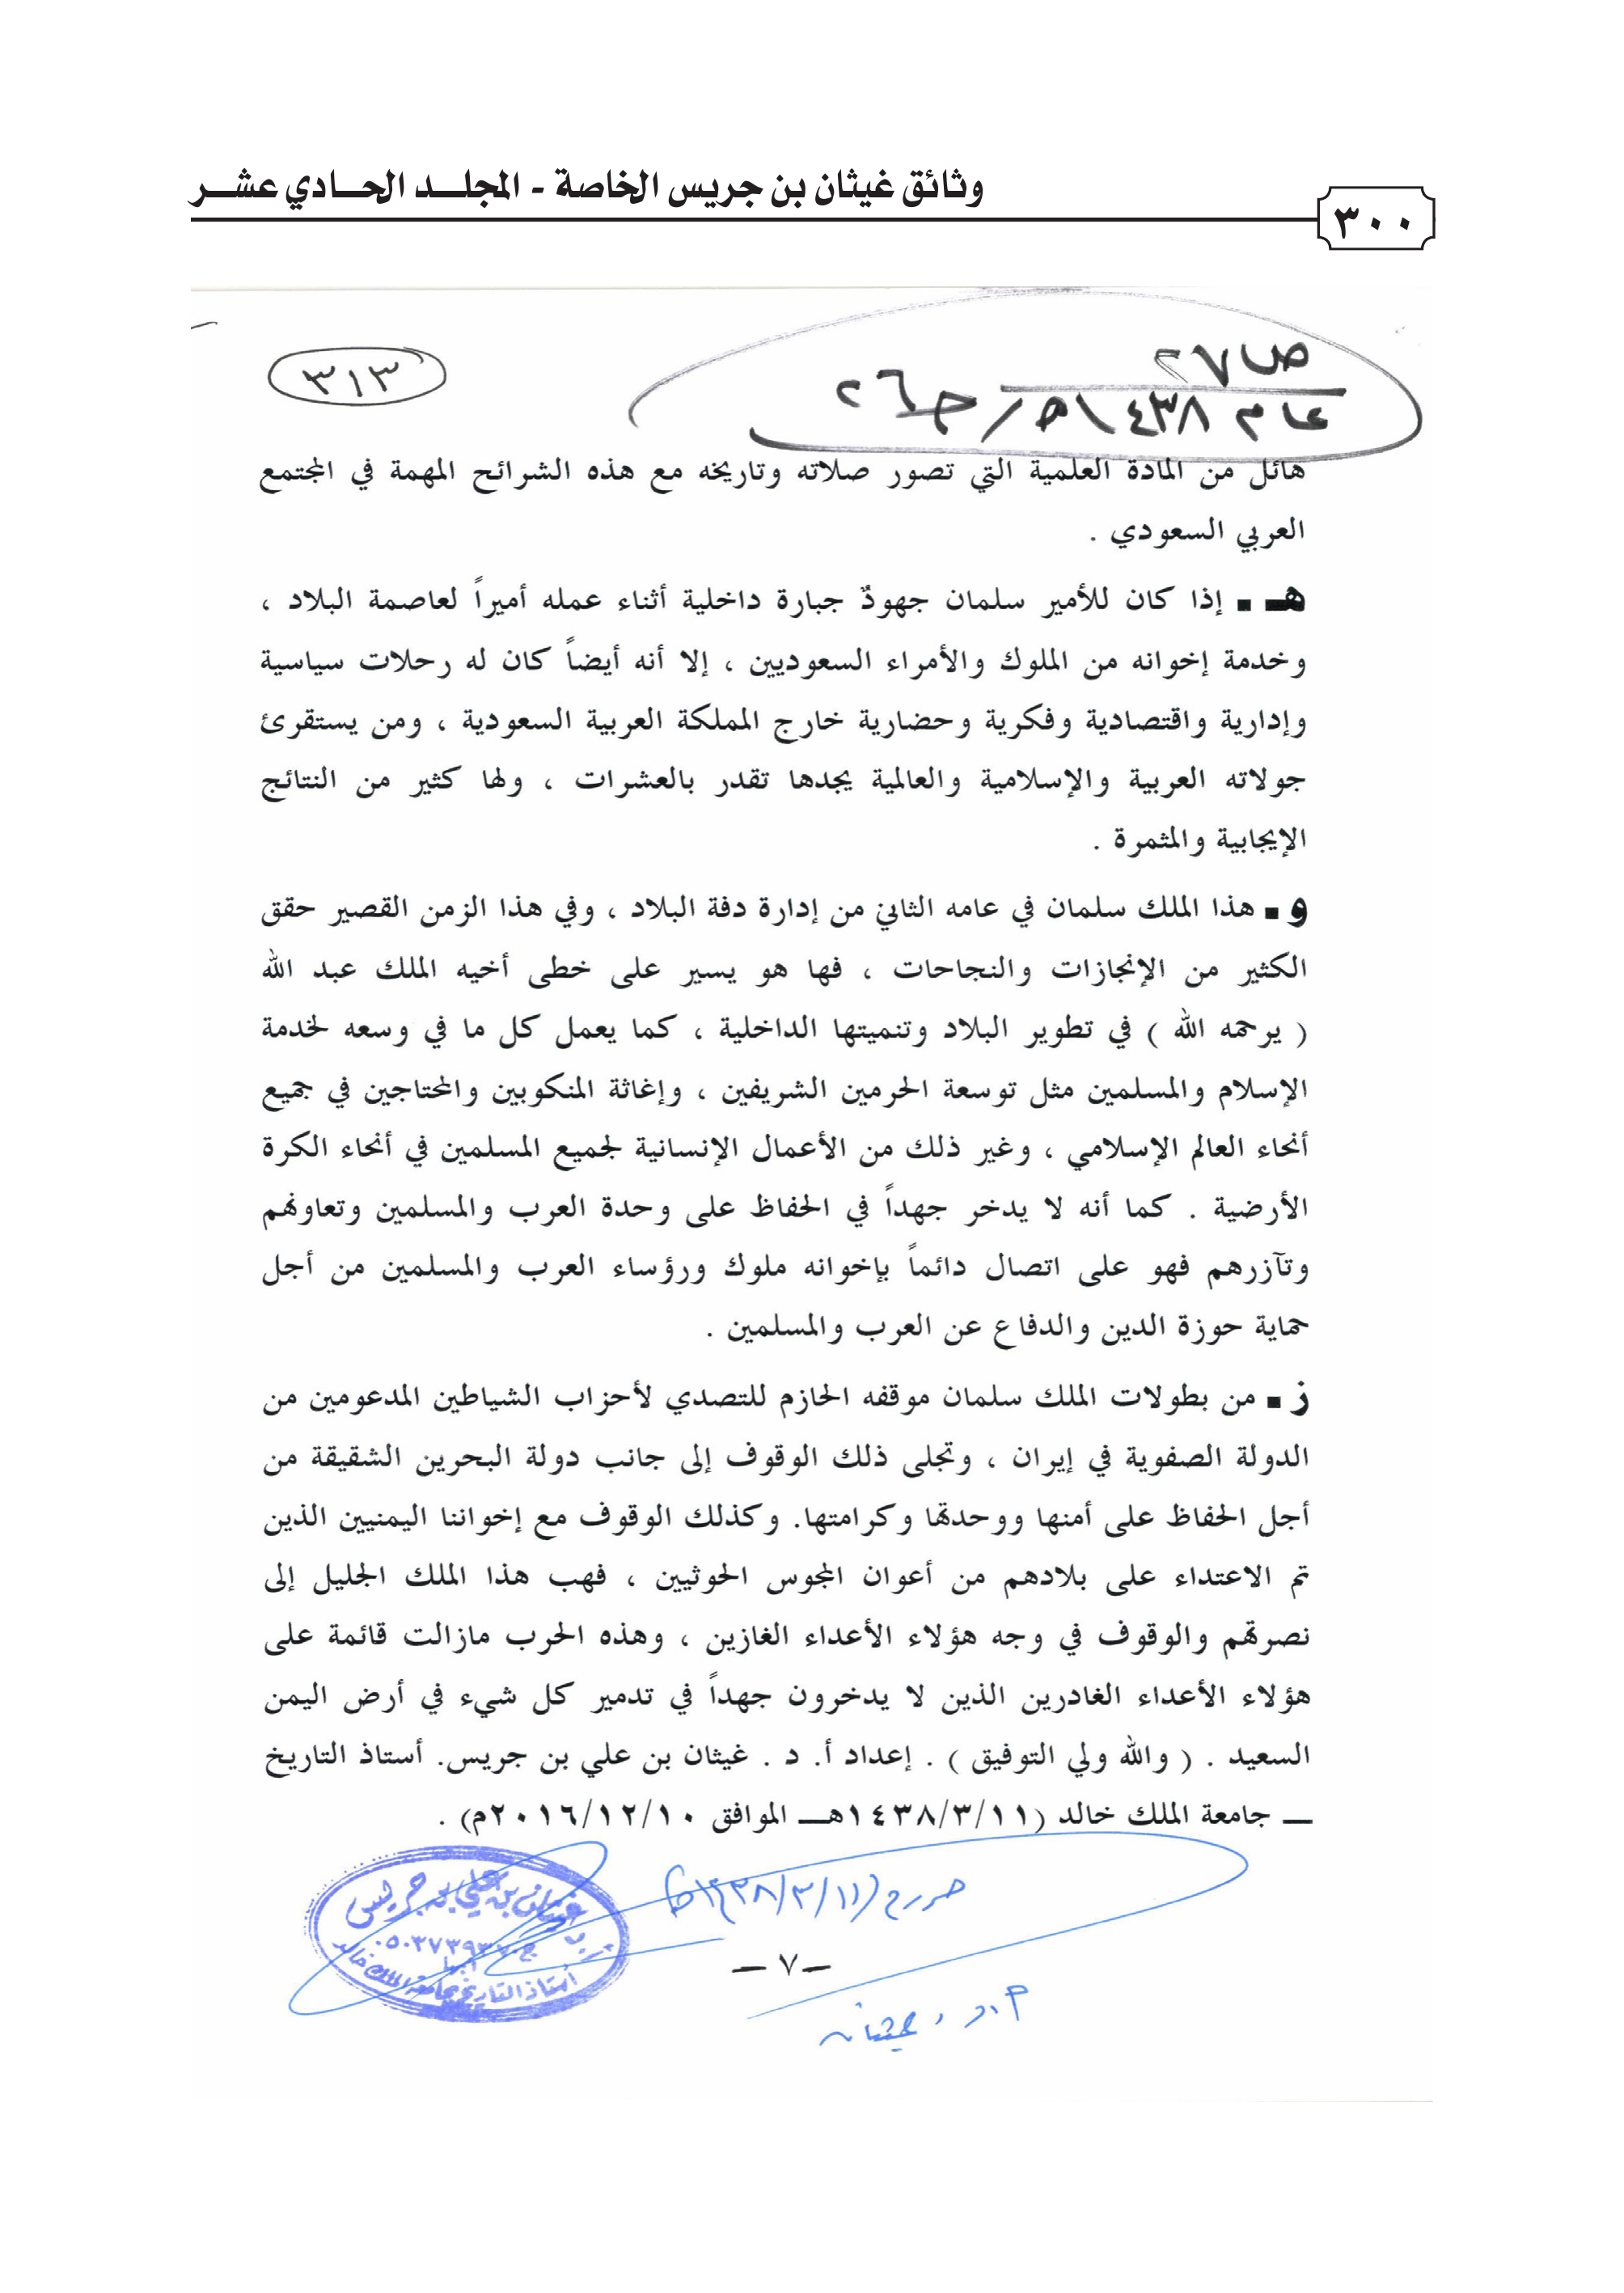 وثائق غيثان بن جريس الخاصة - المجلـــد الحـــادي عشـــر
٣٠٠
ص ٢٧
عام ١٤٣٨هـ / ج ٢٦
٣١٣
هائل من المادة العلمية التي تصور صلاته وتاريخه مع هذه الشرائح المهمة في المجتمع
العربي السعودي .
هـ ـ إذا كان للأمير سلمان جهودٌ جبارة داخلية أثناء عمله أميراً لعاصمة البلاد ،
وخدمة إخوانه من الملوك والأمراء السعوديين ، إلا أنه أيضاً كان له رحلات سياسية
وإدارية واقتصادية وفكرية وحضارية خارج المملكة العربية السعودية ، ومن يستقرئ
جولاته العربية والإسلامية والعالمية يجدها تقدر بالعشرات ، ولها كثير من النتائج
الإيجابية والمثمرة .
و ـ هذا الملك سلمان في عامه الثاني من إدارة دفة البلاد ، وفي هذا الزمن القصير حقق
الكثير من الإنجازات والنجاحات ، فها هو يسير على خطى أخيه الملك عبد الله
( يرحمه الله ) في تطوير البلاد وتنميتها الداخلية ، كما يعمل كل ما في وسعه لخدمة
الإسلام والمسلمين مثل توسعة الحرمين الشريفين ، وإغاثة المنكوبين والمحتاجين في جميع
أنحاء العالم الإسلامي ، وغير ذلك من الأعمال الإنسانية لجميع المسلمين في أنحاء الكرة
الأرضية . كما أنه لا يدخر جهداً في الحفاظ على وحدة العرب والمسلمين وتعاونهم
وتآزرهم فهو على اتصال دائماً بإخوانه ملوك ورؤساء العرب والمسلمين من أجل
حماية حوزة الدين والدفاع عن العرب والمسلمين .
ز ـ من بطولات الملك سلمان موقفه الحازم للتصدي لأحزاب الشياطين المدعومين من
الدولة الصفوية في إيران ، وتجلى ذلك الوقوف إلى جانب دولة البحرين الشقيقة من
أجل الحفاظ على أمنها ووحدتها وكرامتها. وكذلك الوقوف مع إخواننا اليمنيين الذين
تم الاعتداء على بلادهم من أعوان المجوس الحوثيين ، فهب هذا الملك الجليل إلى
نصرتهم والوقوف في وجه هؤلاء الأعداء الغازين ، وهذه الحرب مازالت قائمة على
هؤلاء الأعداء الغادرين الذين لا يدخرون جهداً في تدمير كل شيء في أرض اليمن
السعيد . ( والله ولي التوفيق ) . إعداد أ. د . غيثان بن علي بن جريس. أستاذ التاريخ
ـــ جامعة الملك خالد (١٤٣٨/٣/١١هـــ الموافق ٢٠١٦/١٢/١٠م) .
(١٤٣٨/٣/١١هـ)
غيثان بن علي بن جريس
أبها
أستاذ التاريخ بجامعة الملك خالد
ــ ٧ ــ
أ.د. غيثان